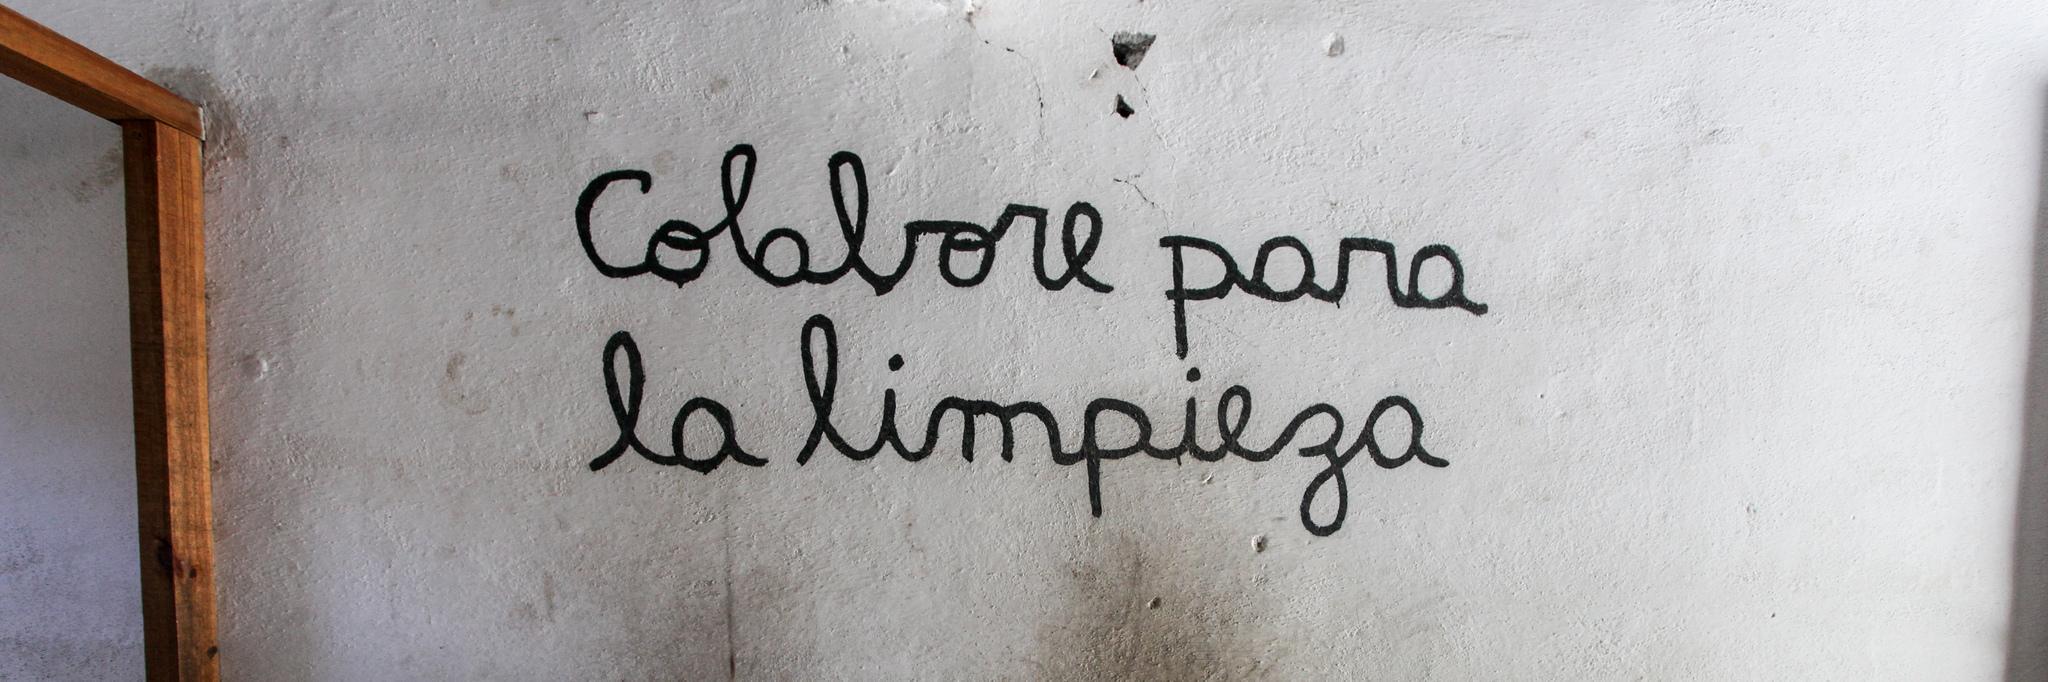 Colabore para
la limpieza